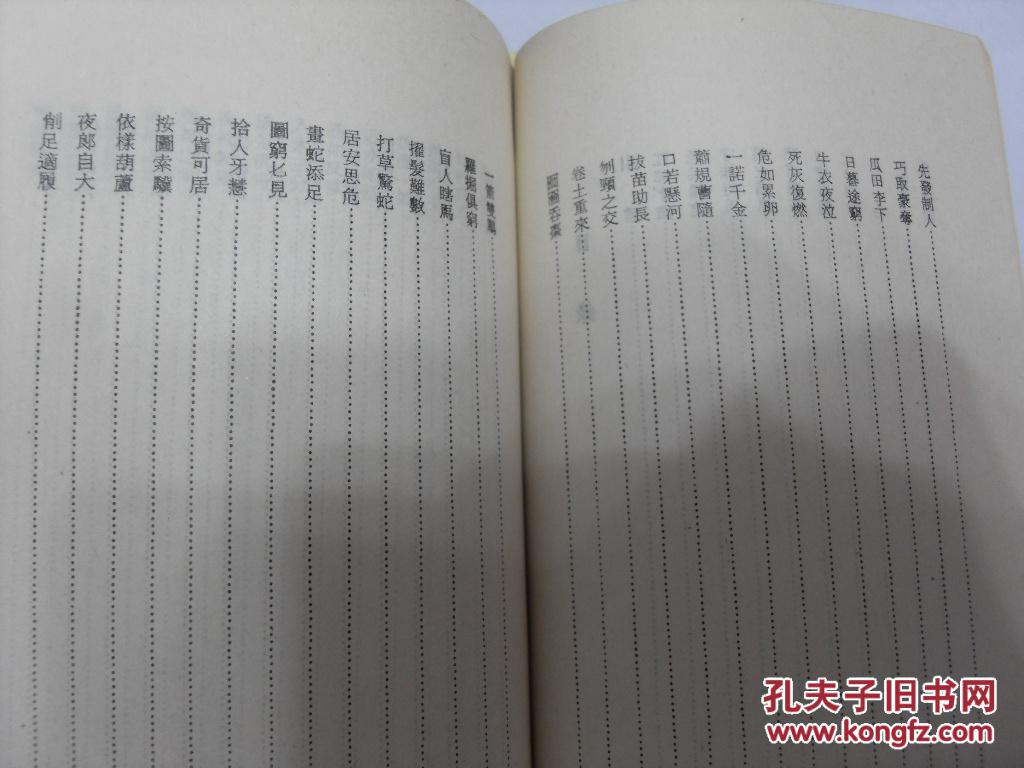 先發制人
巧取豪奪
瓜田李下
日暮途窮
牛衣夜泣
死灰復燃
危如累卵
一諾千金
蕭規曹隨
口若懸河
拔苗助長
刎頸之交
卷土重來
囫圇吞棗
一箭雙鵰
羅掘俱窮
盲人瞎馬
擢髮難數
打草驚蛇
居安思危
畫蛇添足
圖窮匕見
拾人牙慧
奇貨可居
按圖索驥
依樣葫蘆
夜郎自大
削足適履
孔夫子旧书网
www.kongfz.com